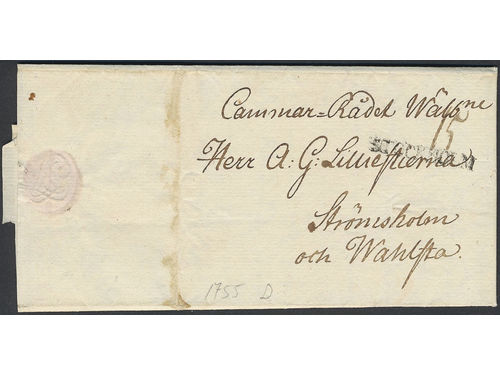 Cammar-Rådet Wälbne
15
STOCKHOLM
Herr A: G: Lilliestierna
Strömsholm
och Wahlsta.
1755 D